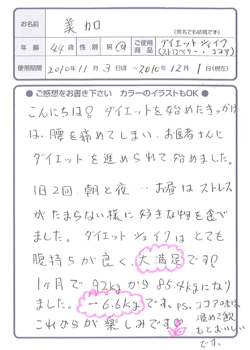 お名前 美加 (匿名でも結構です)
年齢 44才 性別 男・女 ご使用商品 ダイエットシェイク(ストロベリー・ココア)
使用期間 2010年11月3日頃~2010年12月1日(現在)
●ご感想をお書き下さい カラーのイラストもOK●
こんにちは♀ ダイエットを始めたきっかけ
は、腰を痛めてしまい、お医者さんに
ダイエットを進められて始めました。
1日2回 朝と夜…お昼はストレス
がたまらない様に好きな物を食べ
ました。ダイエットシェイクはとても
腹持ちが良く、大満足です♀
1ヶ月で92kgから85.4kgになり
ました。-6.6kgです。P.S. ココア味は
これからが楽しみです 温めて飲
むとおいしい
です。